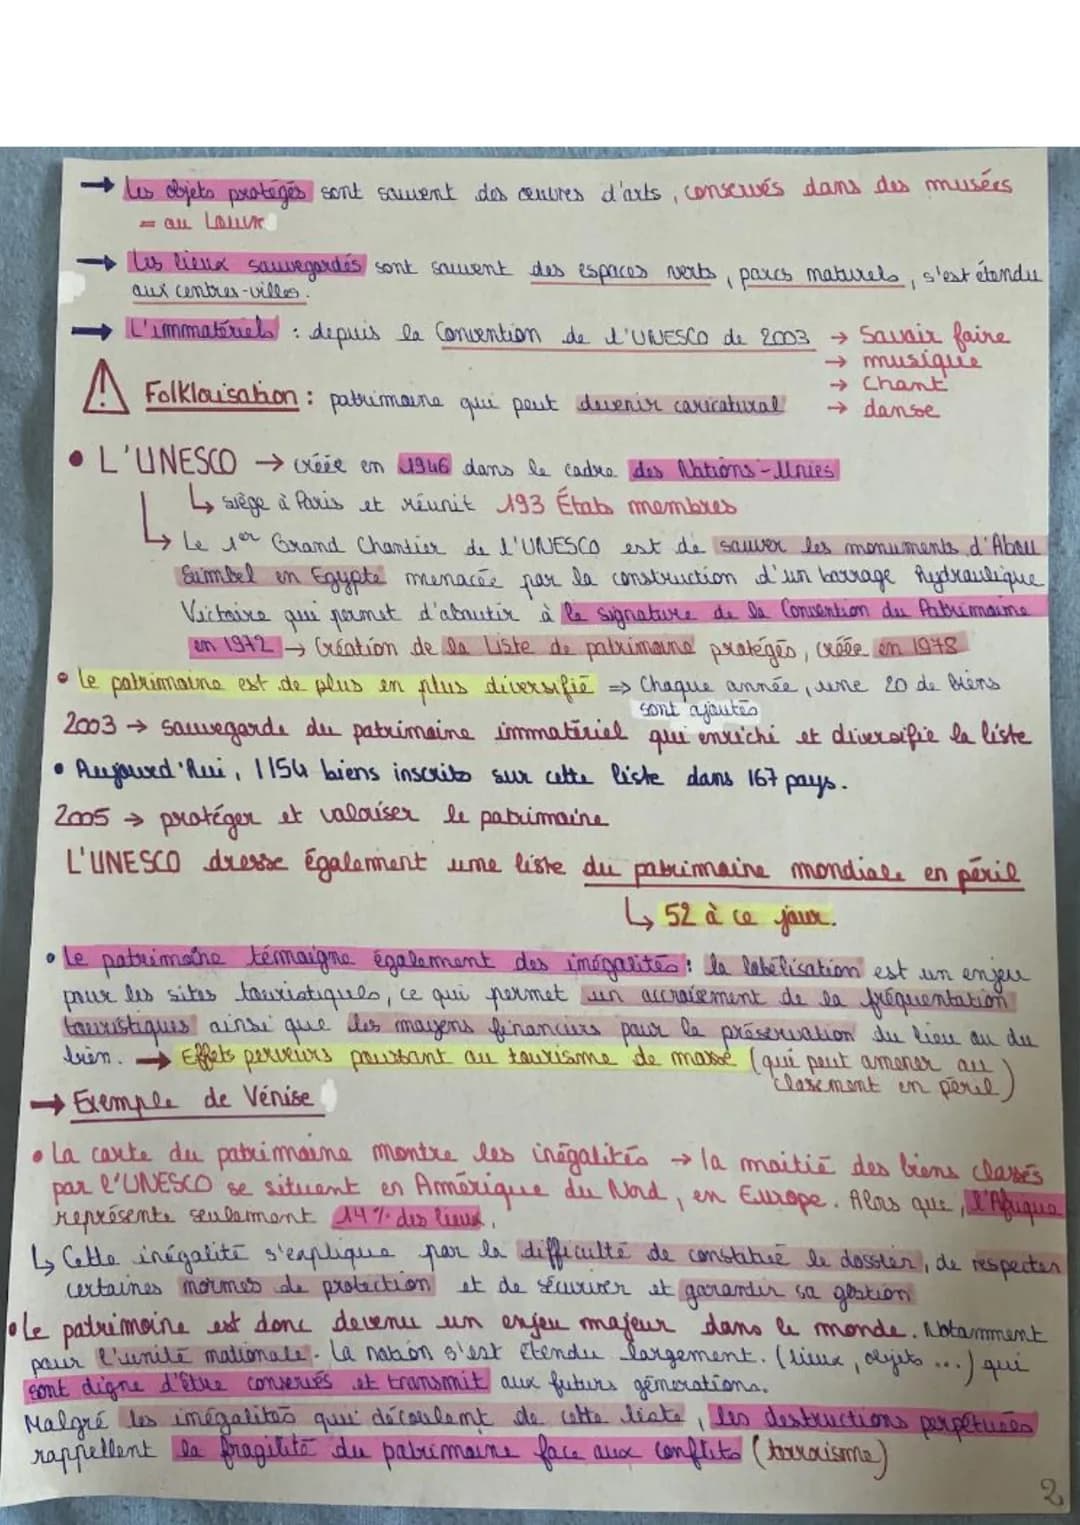 → Les objets protégés sont souvent des œuvres d'arts, conservés dans des musées
= au Louvre
→ Les lieux sauvegardés sont souvent des espaces verts, parcs naturels, s'est étendu
aux centres-villes.
→ L'immatériels : depuis la Convention de l'UNESCO de 2003 → Savoir faire
→ musique
→ Chant
⚠ Folklorisation : patrimoine qui peut devenir caricatural → danse
• L'UNESCO → créée en 1946 dans le cadre des Nations-Unies
↳ siège à Paris et réunit 193 États membres
↳ Le 1er Grand Chantier de l'UNESCO est de sauver les monuments d'Abou
Simbel en Egypte menacée par la construction d'un barrage hydraulique
Victoire qui permet d'aboutir à la signature de la Convention du Patrimoine
en 1972 → Création de la Liste de patrimoine protégés, créée en 1978
• Le patrimoine est de plus en plus diversifié => Chaque année, une 20 de biens
sont ajoutés
2003 → sauvegarde du patrimoine immatériel qui enrichi et diversifie la liste
• Aujourd'hui, 1154 biens inscrits sur cette liste dans 167 pays.
2005 → protéger et valoriser le patrimoine
L'UNESCO dresse également une liste du patrimoine mondiale en péril
↳ 52 à ce jour.
• Le patrimoine témoigne également des inégalités : la labélisation est un enjeu
pour les sites touristiques, ce qui permet un accroisement de la fréquentation
touristiques ainsi que des moyens financiers pour la préservation du lieu ou du
bien. → Effets perveurs poussant au tourisme de masse (qui peut amener au
classement en péril)
→ Exemple de Vénise
• La carte du patrimoine montre les inégalités → la moitié des biens classés
par l'UNESCO se situent en Amérique du Nord, en Europe. Alors que, l'Afrique
représente seulement 14% des lieux.
↳ Cette inégalité s'explique par la difficulté de constitué le dossier, de respecter
certaines normes de protection et de sécuriser et garantir sa gestion
• Le patrimoine est donc devenu un enjeu majeur dans le monde. Notamment
pour l'unité nationale. La nation s'est étendu largement. (lieux, objets ...) qui
sont digne d'être conservés et transmit aux futurs générations.
Malgré les inégalités qui découlent de cette liste, les destructions perpétuées
rappellent la fragilité du patrimoine face aux conflits (terrorisme)
2